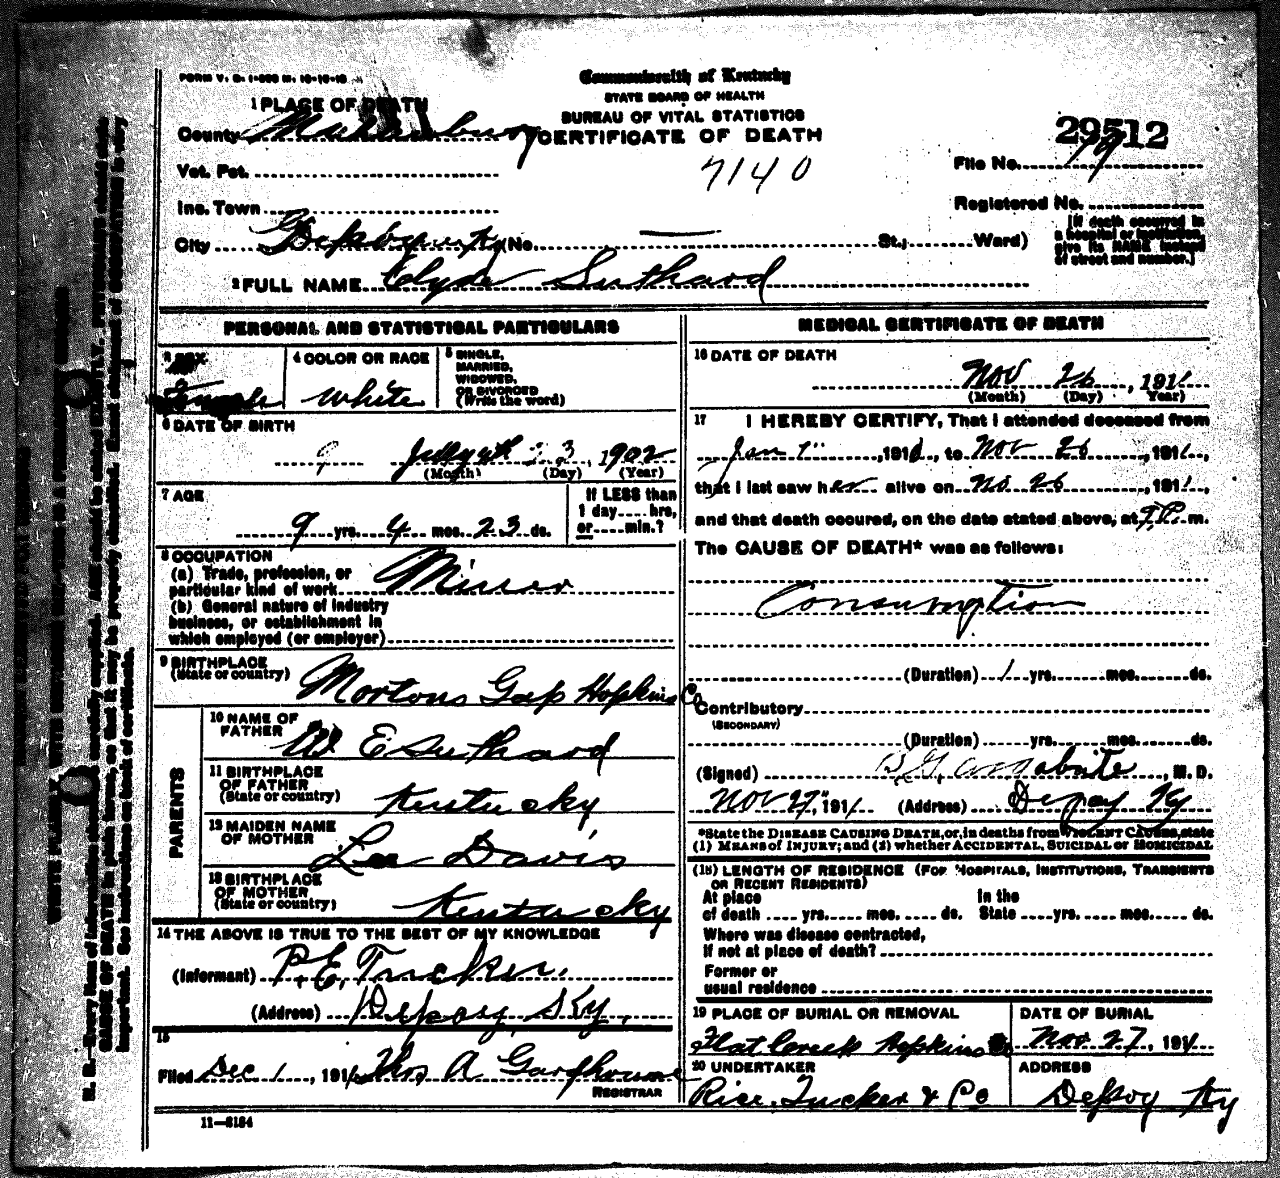 FORM V. S. 1-
Commonwealth of Kentucky
STATE BOARD OF HEALTH
BUREAU OF VITAL STATISTICS
CERTIFICATE OF DEATH
1 PLACE OF DEATH
County
Vot. Pct.
Inc. Town
City (No. St.; Ward)
7140
29512
File No.
Registered No.
[If death occurred in
a hospital or institution,
give its NAME instead
of street and number.]
2 FULL NAME Clyde Suthard
PERSONAL AND STATISTICAL PARTICULARS
3 SEX
Female
4 COLOR OR RACE
White
5 SINGLE,
MARRIED,
WIDOWED,
OR DIVORCED
(Write the word)
6 DATE OF BIRTH
July 1902
(Month) (Day) (Year)
7 AGE
9 yrs. 4 mos. 23 ds.
If LESS than
1 day.... hrs,
or.....min.?
8 OCCUPATION
(a) Trade, profession, or
particular kind of work
(b) General nature of industry
business, or establishment in
which employed (or employer)
9 BIRTHPLACE
(State or country) Mortons Gap Hopkins Co
PARENTS
10 NAME OF
FATHER W E Suthard
11 BIRTHPLACE
OF FATHER
(State or country) Kentucky
12 MAIDEN NAME
OF MOTHER Lee Davis
13 BIRTHPLACE
OF MOTHER
(State or country) Kentucky
14 THE ABOVE IS TRUE TO THE BEST OF MY KNOWLEDGE
(Informant) P. E. Tucker.
(Address) Depoy, Ky.
15
Filed Dec 1, 1911 Thos A
REGISTRAR
11-3184
MEDICAL CERTIFICATE OF DEATH
16 DATE OF DEATH
Nov 26, 1911
(Month) (Day) (Year)
17 I HEREBY CERTIFY, That I attended deceased from
Jan 1", 1911, to Nov 26, 1911,
that I last saw her alive on No 26, 1911,
and that death occured, on the date stated above, at 9 P. m.
The CAUSE OF DEATH* was as follows:
Consumption
(Duration) 1 yrs. mos. ds.
Contributory
(SECONDARY)
(Duration) yrs. mos. ds.
(Signed) , M. D.
Nov 27", 1911 (Address) Depoy Ky
*State the DISEASE CAUSING DEATH, or, in deaths from VIOLENT CAUSES, state
(1) MEANS of INJURY; and (2) whether ACCIDENTAL, SUICIDAL or HOMICIDAL
(18) LENGTH OF RESIDENCE (FOR HOSPITALS, INSTITUTIONS, TRANSIENTS
OR RECENT RESIDENTS)
At place In the
of death .... yrs. mos. ds. State yrs. mos. ds.
Where was disease contracted,
if not at place of death?
Former or
usual residence
19 PLACE OF BURIAL OR REMOVAL
Flat Creek Hopkins Co
DATE OF BURIAL
Nov 27, 1911
20 UNDERTAKER
Rice, Tucker & Co
ADDRESS
Depoy Ky